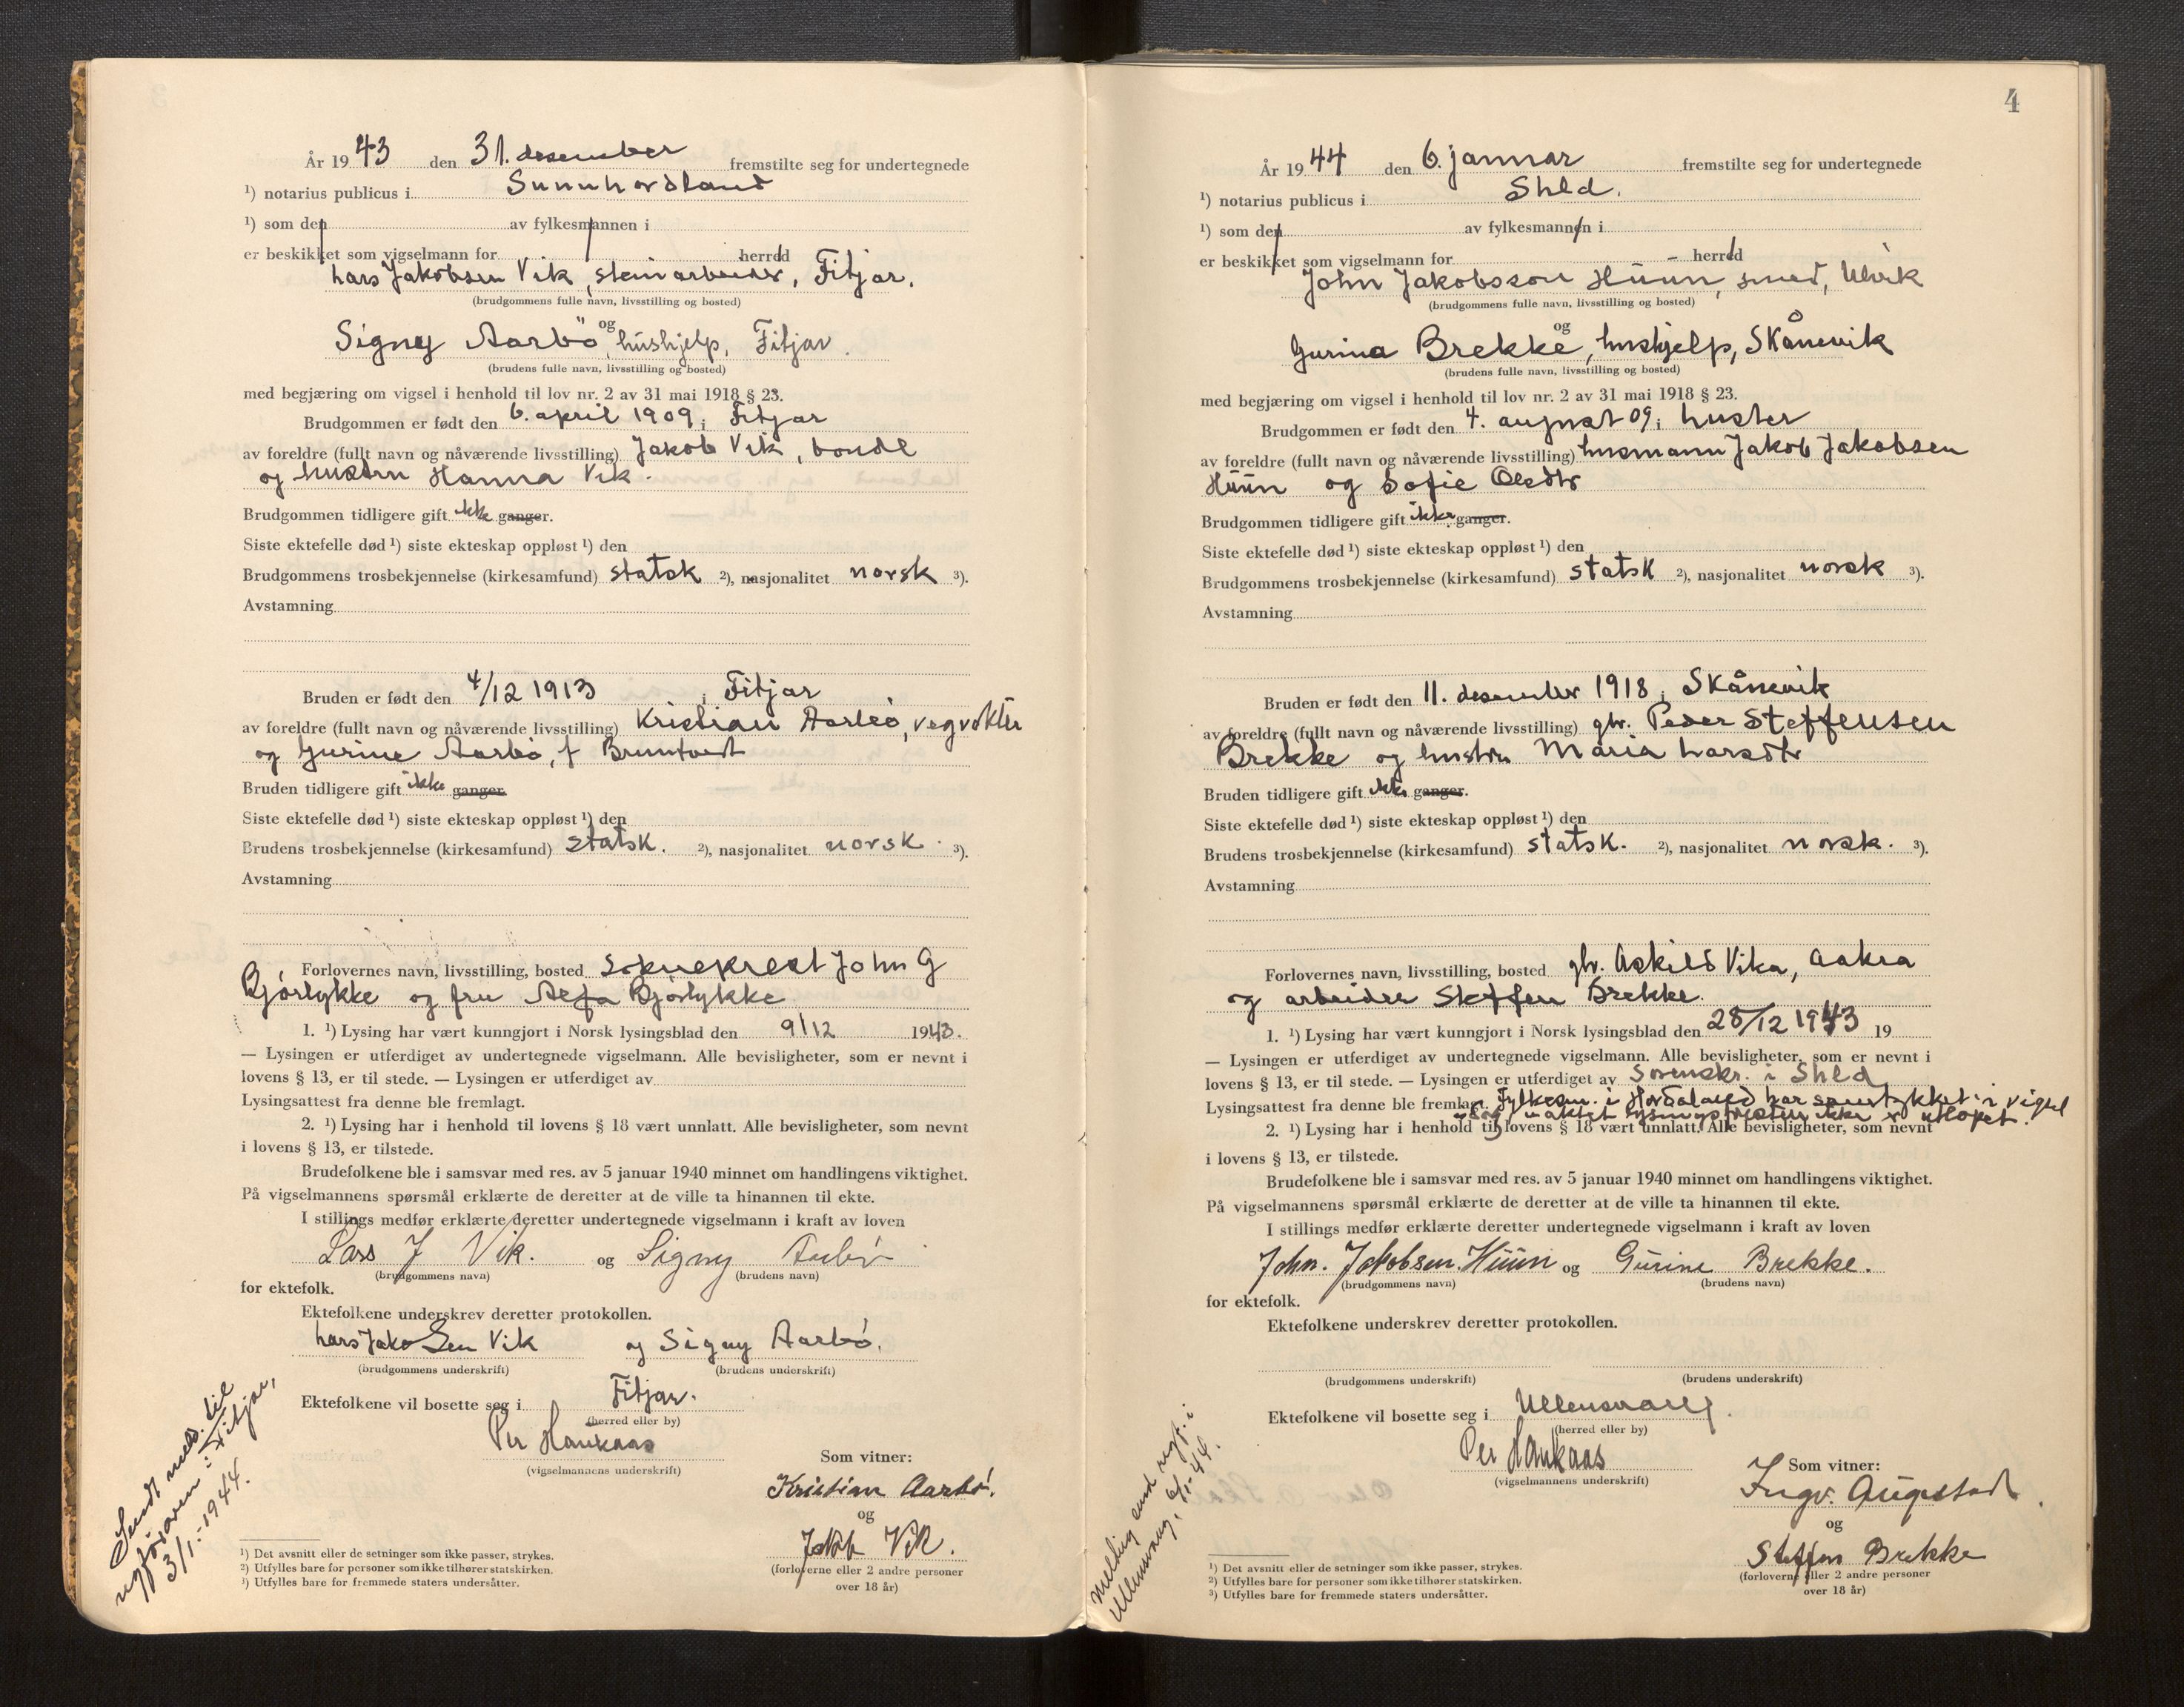 År 1943 den 31. desember fremstilte seg for undertegnede
¹) notarius publicus i Sunnhordland
¹) som den av fylkesmannen i
er beskikket som vigselmann for herred
Lars Jakobsen Vik, steinarbeider, Fitjar.
(brudgommens fulle navn, livsstilling og bosted)
og
Signy Aarbö, hushjelp, Fitjar.
(brudens fulle navn, livsstilling og bosted)
med begjæring om vigsel i henhold til lov nr. 2 av 31 mai 1918 § 23.
Brudgommen er født den 6. april 1909 i Fitjar
av foreldre (fullt navn og nåværende livsstilling) Jakob Vik, bonde
og hustru Hanna Vik.
Brudgommen tidligere gift ikke ganger.
Siste ektefelle død ¹) siste ekteskap oppløst ¹) den
Brudgommens trosbekjennelse (kirkesamfund) statsk ²), nasjonalitet norsk ³).
Avstamning
Bruden er født den 4/12 1913 i Fitjar
av foreldre (fullt navn og nåværende livsstilling) Kristian Aarbö, vegvokter
og Gurine Aarbö, f
Bruden tidligere gift ikke ganger
Siste ektefelle død ¹) siste ekteskap oppløst ¹) den
Brudens trosbekjennelse (kirkesamfund) statsk. ²), nasjonalitet norsk. ³).
Avstamning
Forlovernes navn, livsstilling, bosted Sokneprest John G
Bjórlykke og fru Bjórlykke
1. ¹) Lysing har vært kunngjort i Norsk lysingsblad den 9/12 1943.
— Lysingen er utferdiget av undertegnede vigselmann. Alle bevisligheter, som er nevnt i
lovens § 13, er til stede. — Lysingen er utferdiget av
Lysingsattest fra denne ble fremlagt.
2. ¹) Lysing har i henhold til lovens § 18 vært unnlatt. Alle bevisligheter, som nevnt
i lovens § 13, er tilstede.
Brudefolkene ble i samsvar med res. av 5 januar 1940 minnet om handlingens viktighet.
På vigselmannens spørsmål erklærte de deretter at de ville ta hinannen til ekte.
I stillings medfør erklærte deretter undertegnede vigselmann i kraft av loven
Lars J Vik. og Signy Aarbö
(brudgommens navn) (brudens navn)
for ektefolk.
Ektefolkene underskrev deretter protokollen.
Lars Jakobsen Vik og Signy Aarbó.
(brudgommens underskrift) (brudens underskrift)
Ektefolkene vil bosette seg i Fitjar.
(herred eller by)
Per Haukaas
(vigselmannens underskrift)
Som vitner:
Kristian Aarbó.
og
Jakob Vik.
(forloverne eller 2 andre personer
over 18 år)
Sendt meld. til
regföraren i Fitjar,
3/1.-1944.
¹) Det avsnitt eller de setninger som ikke passer, strykes.
²) Utfylles bare for personer som ikke tilhører statskirken.
³) Utfylles bare for fremmede staters undersåtter.
4
År 1944 den 6. januar fremstilte seg for undertegnede
¹) notarius publicus i Shld.
¹) som den av fylkesmannen i
er beskikket som vigselmann for herred
John Jakobsson Hüun, smed, Ulvik
(brudgommens fulle navn, livsstilling og bosted)
og
Gurina Brekke, hushjelp, Skånevik
(brudens fulle navn, livsstilling og bosted)
med begjæring om vigsel i henhold til lov nr. 2 av 31 mai 1918 § 23.
Brudgommen er født den 4. august 09 i Luster
av foreldre (fullt navn og nåværende livsstilling) husmann Jakob Jakobsen
Hüun og Sofie Olsdtr
Brudgommen tidligere gift ikke ganger.
Siste ektefelle død ¹) siste ekteskap oppløst ¹) den
Brudgommens trosbekjennelse (kirkesamfund) statsk ²), nasjonalitet norsk ³).
Avstamning
Bruden er født den 11. desember 1918 i Skånevik
av foreldre (fullt navn og nåværende livsstilling) gbr. Peder Steffensen
Brekke og hustru Maria Larsdtr
Bruden tidligere gift ikke ganger.
Siste ektefelle død ¹) siste ekteskap oppløst ¹) den
Brudens trosbekjennelse (kirkesamfund) statsk. ²), nasjonalitet norsk. ³).
Avstamning
Forlovernes navn, livsstilling, bosted gbr. Askild Vika, Aakra
og arbeider Steffen Brekke.
1. ¹) Lysing har vært kunngjort i Norsk lysingsblad den 28/12 1943 19
— Lysingen er utferdiget av undertegnede vigselmann. Alle bevisligheter, som er nevnt i
lovens § 13, er til stede. — Lysingen er utferdiget av Sorenskr. i Shld
Lysingsattest fra denne ble fremlagt. Fylkesm. i Hordaland har samtykket i vigsel
uaktet lysingsfristen ikke er utløpet.
2. ¹) Lysing har i henhold til lovens § 18 vært unnlatt. Alle bevisligheter, som nevnt
i lovens § 13, er tilstede.
Brudefolkene ble i samsvar med res. av 5 januar 1940 minnet om handlingens viktighet.
På vigselmannens spørsmål erklærte de deretter at de ville ta hinannen til ekte.
I stillings medfør erklærte deretter undertegnede vigselmann i kraft av loven
John. Jakobsen. Hüun og Gurine Brekke.
(brudgommens navn) (brudens navn)
for ektefolk.
Ektefolkene underskrev deretter protokollen.
(brudgommens underskrift) (brudens underskrift)
Ektefolkene vil bosette seg i Ullensvang.
(herred eller by)
Per Haukaas
(vigselmannens underskrift)
Som vitner:
Ingv. Augestad.
og
Steffen Brekke
(forloverne eller 2 andre personer
over 18 år)
Melding send regf. i
Ullensvang, 6/1-44.
¹) Det avsnitt eller de setninger som ikke passer, strykes.
²) Utfylles bare for personer som ikke tilhører statskirken.
³) Utfylles bare for fremmede staters undersåtter.